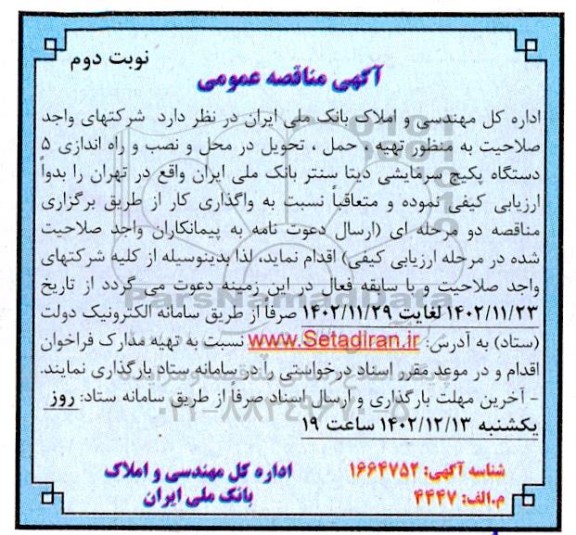 نوبت دوم
آگهی مناقصه عمومی
اداره کل مهندسی و املاک بانک ملی ایران در نظر دارد شرکتهای واجد
صلاحیت به منظور تهیه ، حمل ، تحویل در محل و نصب و راه اندازی ۵
دستگاه پکیج سرمایشی دیتا سنتر بانک ملی ایران واقع در تهران را بدواً
ارزیابی کیفی نموده و متعاقباً نسبت به واگذاری کار از طریق برگزاری
مناقصه دو مرحله ای (ارسال دعوت نامه به پیمانکاران واجد صلاحیت
شده در مرحله ارزیابی کیفی) اقدام نماید، لذا بدینوسیله از کلیه شرکتهای
واجد صلاحیت و با سابقه فعال در این زمینه دعوت می گردد از تاریخ
۱۴۰۲/۱۱/۲۳ لغایت ۱۴۰۲/۱۱/۲۹ صرفاً از طریق سامانه الکترونیک دولت
(ستاد) به آدرس: www.Setadiran.ir نسبت به تهیه مدارک فراخوان
اقدام و در موعد مقرر اسناد درخواستی را در سامانه ستاد بارگذاری نمایند.
- آخرین مهلت بارگذاری و ارسال اسناد صرفاً از طریق سامانه ستاد: روز
یکشنبه ۱۴۰۲/۱۲/۱۳ ساعت ۱۹
شناسه آگهی: ۱۶۶۴۷۵۲
م.الف: ۴۴۴۷
اداره کل مهندسی و املاک
بانک ملی ایران
ParsNamadData
۰۲۱-۸۸۳۴۹۶۷۰-۵